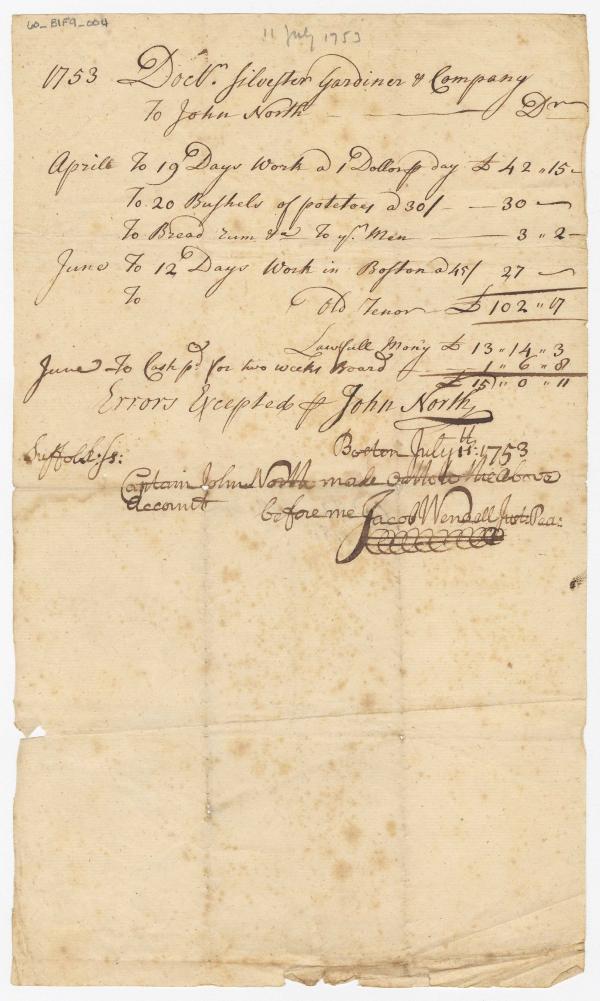 60_B1F9_004
11 July 1753
1753 Doctr. Silvester Gardiner & Company
To John North Dr
Aprill To 19 Days Work a 1 Dollor p day £ 42 " 15 -
To 20 Bushels of potetoes a 30/ - 30 -
To Bread rum &c To ye. Men 3 " 2 -
June To 12 Days Work in Boston a 45/ 27 -
To Old Tenor £ 102 " 17
Lawfull Mony £ 13 " 14 " 3
June To Cash pd. for two weeks Board 1 " 6 " 8
£ 15 " 0 " 11
Errors Excepted p John North
Boston July 11th: 1753
Suffolk: ss:
Captain John North made oath to the above
account before me Jacob Wendell Just: Pea: